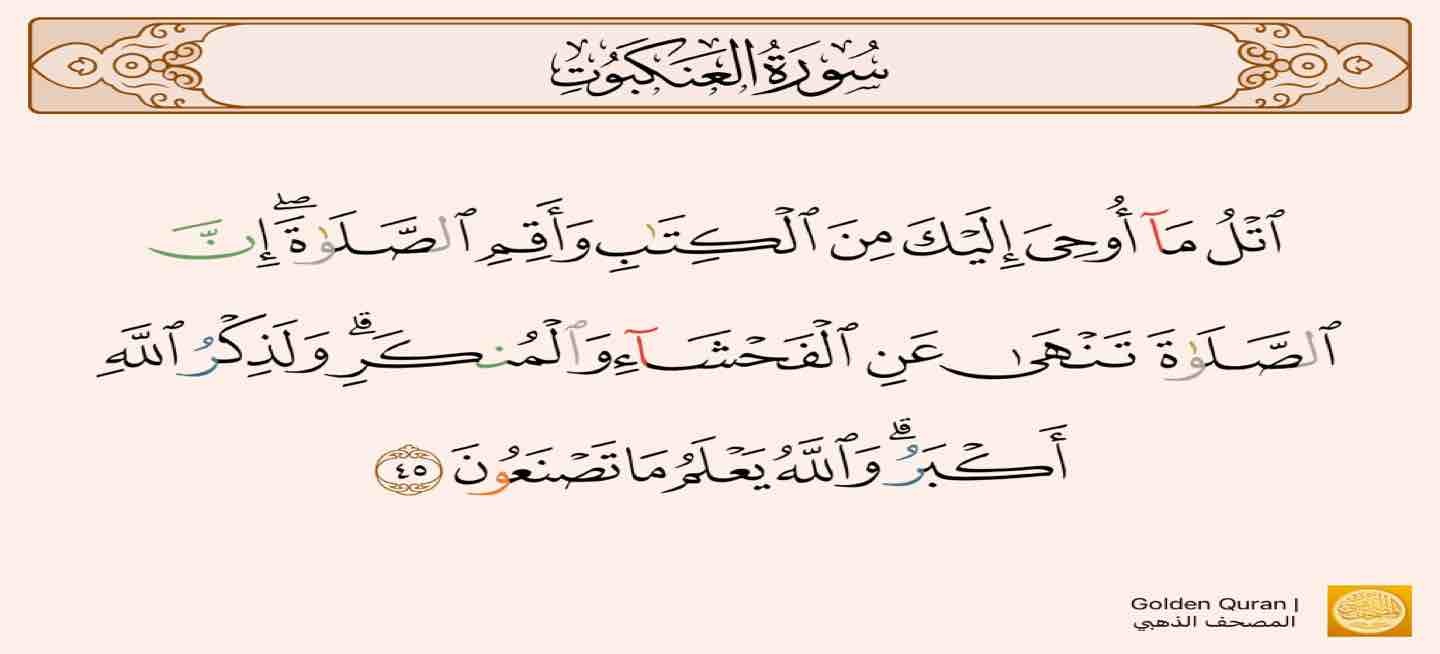 سُورَةُ العَنكَبُوتِ
ٱتْلُ مَآ أُوحِىَ إِلَيْكَ مِنَ ٱلْكِتَـٰبِ وَأَقِمِ ٱلصَّلَوٰةَ ۖ إِنَّ
ٱلصَّلَوٰةَ تَنْهَىٰ عَنِ ٱلْفَحْشَآءِ وَٱلْمُنكَرِ ۗ وَلَذِكْرُ ٱللَّهِ
أَكْبَرُ ۗ وَٱللَّهُ يَعْلَمُ مَا تَصْنَعُونَ ٤٥
Golden Quran |
المصحف الذهبي